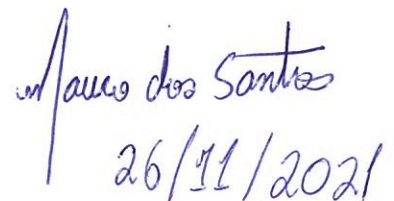 Mauro dos Santos
26/11/2021